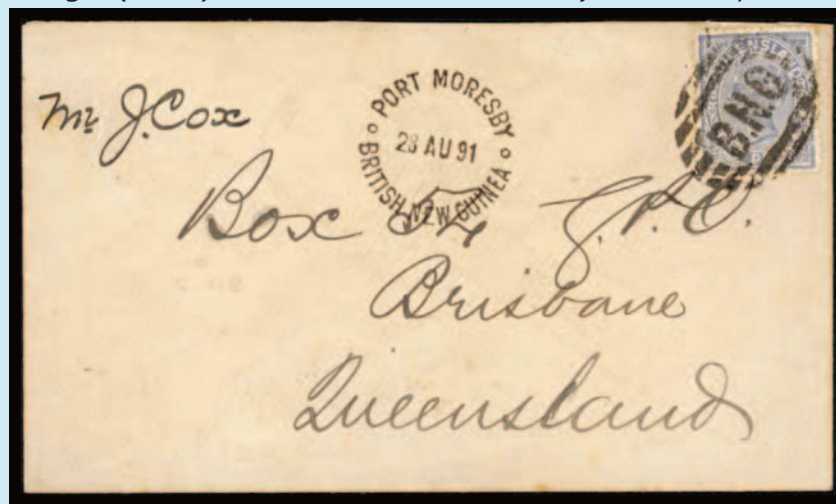 Mr J. Cox
PORT MORESBY
28 AU 91
BRITISH NEW GUINEA
QUEENSLAND
B.N.G
Box 52 G.P.O.
Brisbane
Queensland